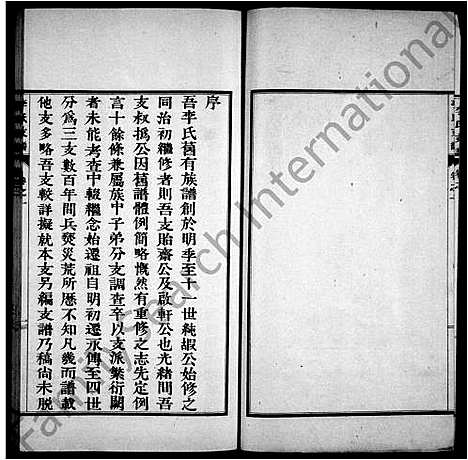 序
吾李氏舊有族譜創於明季至十一世純嘏公始修之
同治初繼修者則吾支貽齋公及啟軒公也光緒間吾
支叔撝公因舊譜體例簡略慨然有重修之志先定例
言十餘條兼屬族中子弟分支調查卒以支派繁衍闕
者未能考查中輟繼念始遷祖自明初遷永傳至四世
分為三支數百年間兵燹災荒所歷不知凡幾而譜載
他支多略吾支較詳擬就本支另編支譜乃稿尚未脫
FamilySearch International